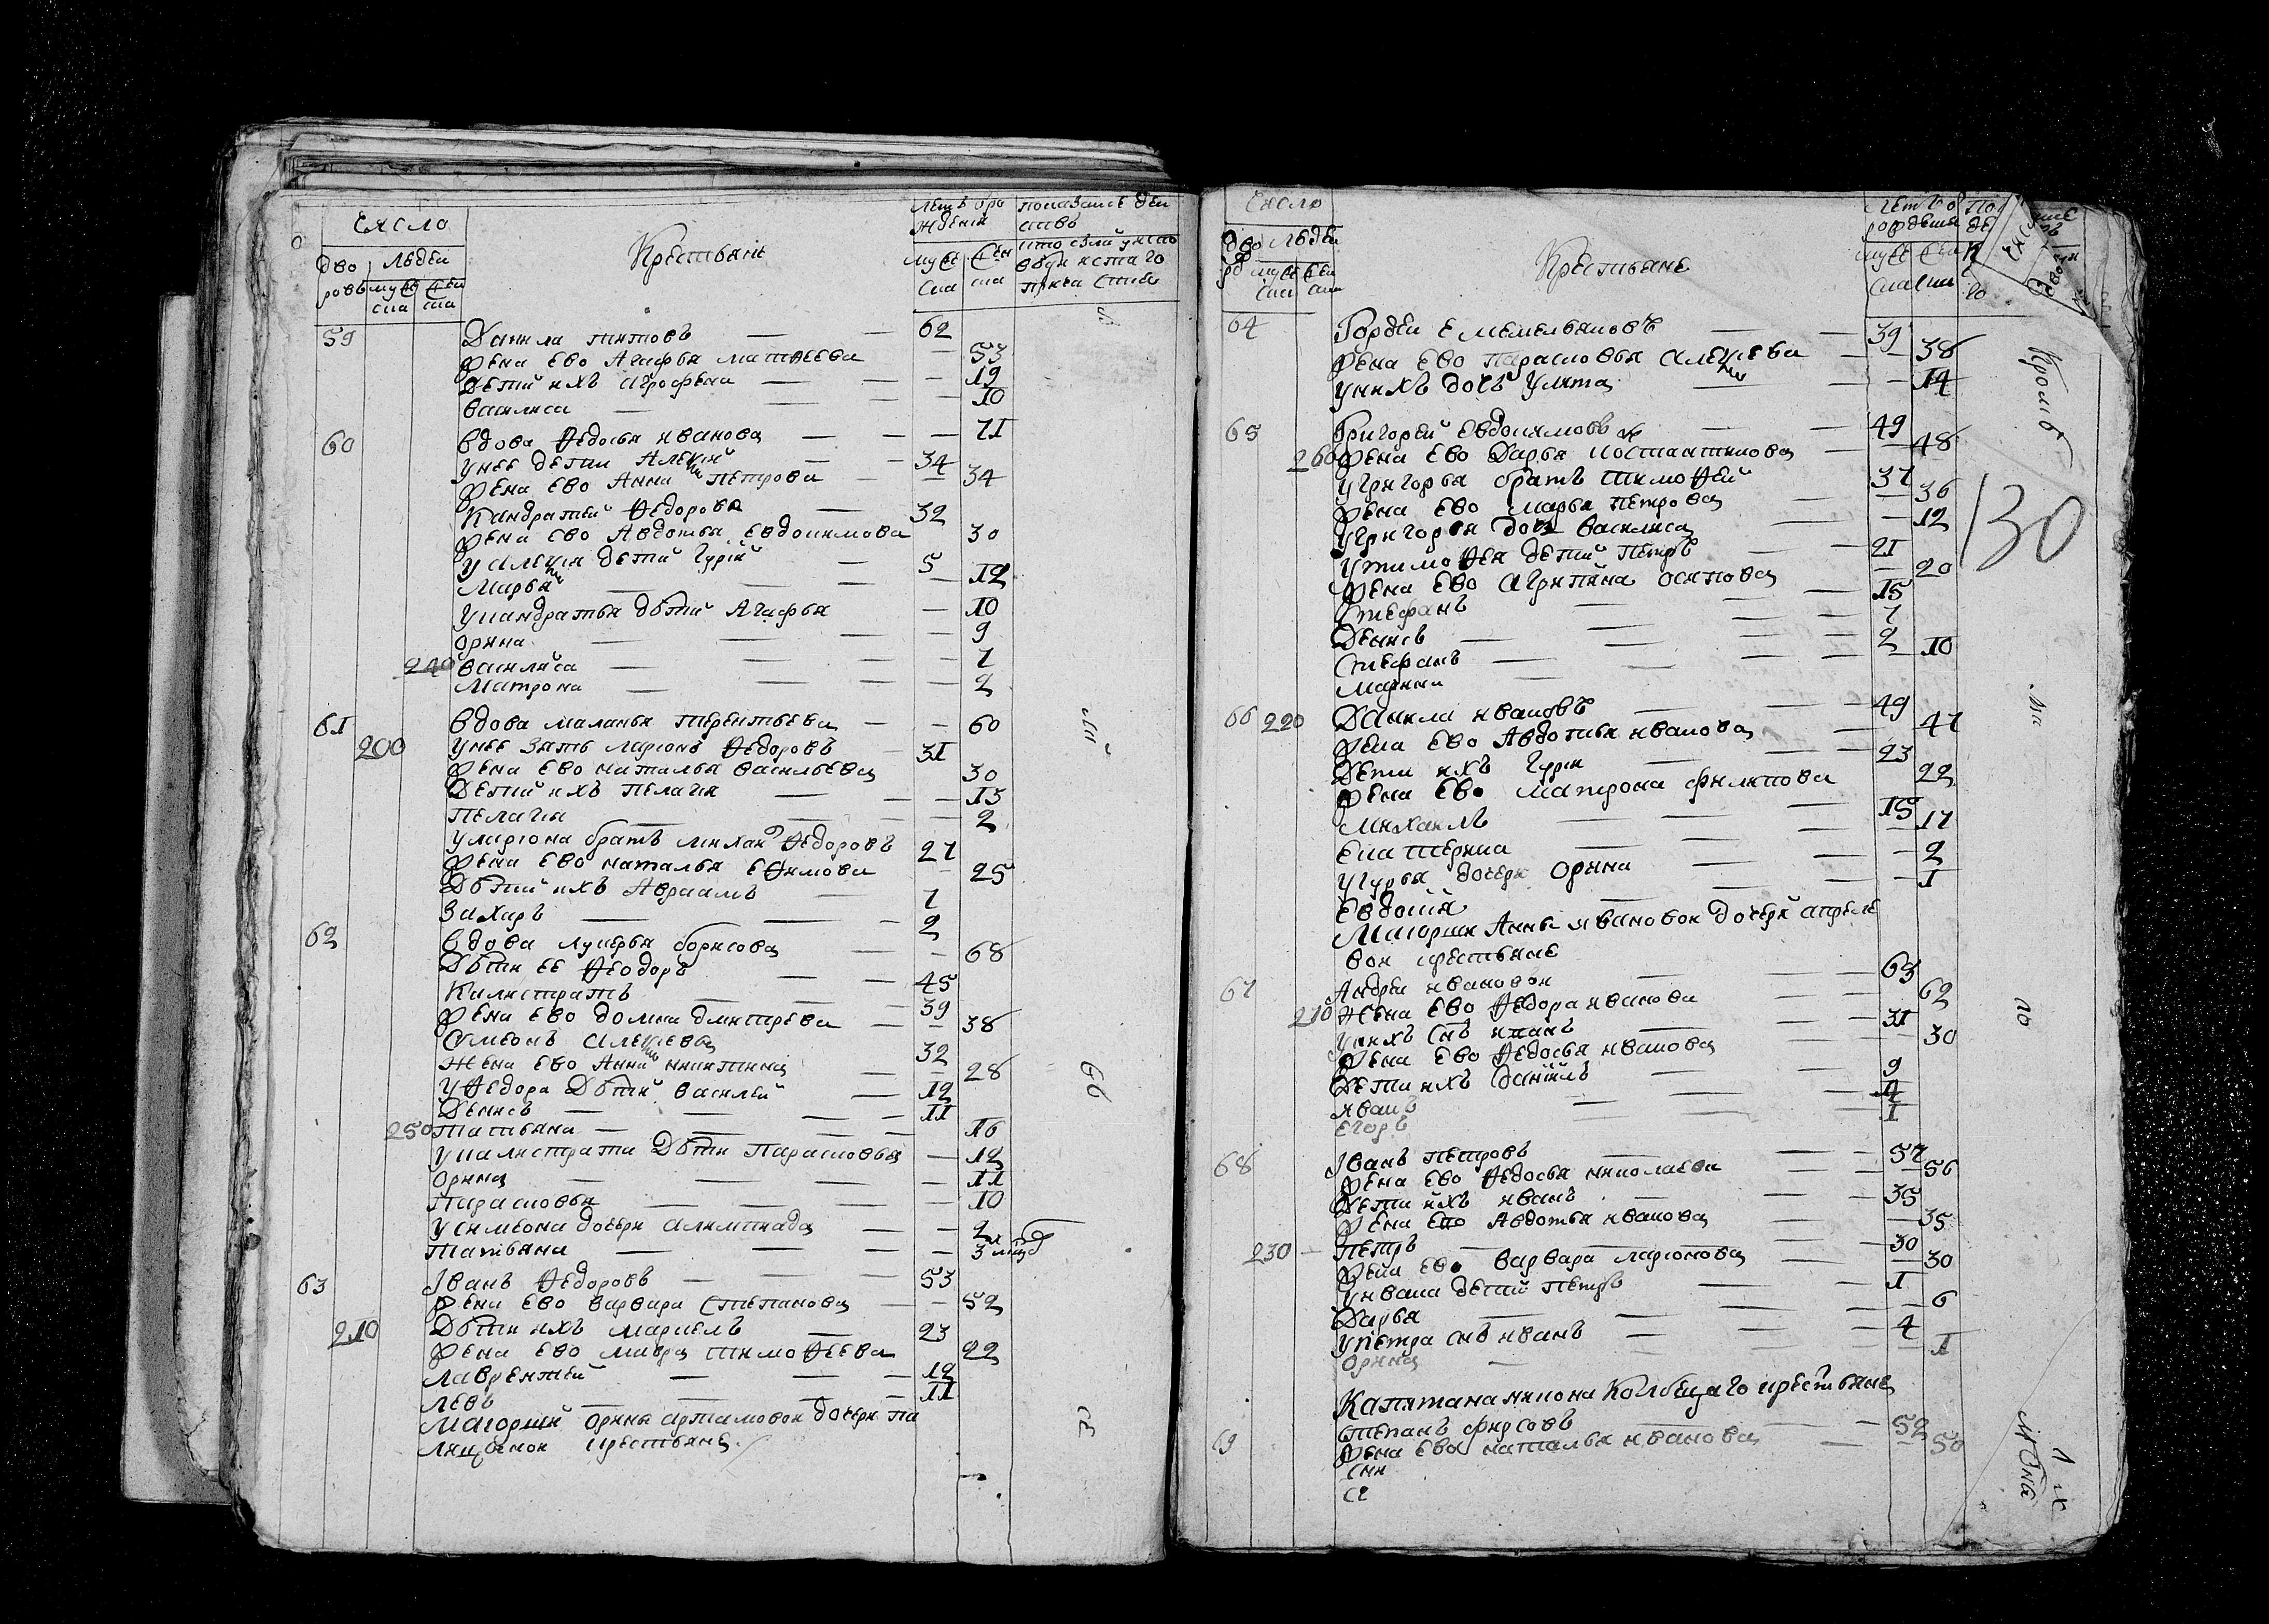 Число
Дво
ровъ
Людей
муж
ска
жен
ска
Крестьяне
Летъ о ро
ждения
муже
ска
жен
ска
показание дей
ствъ
59 Данила Титовъ 62
Жена ево Агафья Матвеева 53
Дети ихъ Агрофена 19
Василиса 10
60 Вдова Ѳедосья Иванова 71
У нее дети Алексѣй 34
Жена ево Анна Петрова 34
Кандратей Ѳедоровъ 32
Жена ево Авдотья Евдокимова 30
У Алексея детий Гурий 5
Марья 12
У Кандратья дѣтий Агафья 10
Орина 9
240 Василиса 7
Матрона 2
61 Вдова Маланья Терентьева 60
200 У нее зять Ларионъ Ѳедоровъ 31
Жена ево Наталья Васильева 30
Детий ихъ Пелагия 13
Пелагия 2
У Лариона братъ Михаи Ѳедоровъ 27
Жена ево Наталья Еѳимова 25
Дѣтий ихъ Авраамъ 7
Захаръ 2
62 Вдова Лукерья Борисова 68
Дѣти ее Ѳеодоръ 45
Калистратъ 39
Жена ево Домна Дмитрева 38
Симеонъ Алексеевъ 32
Жена ево Анна Никитина 28
У Ѳедора дѣтий Василей 12
Денисъ 11
250 Татьяна 16
У Калистрата дѣти Парасковья 12
Орина 11
Парасковья 10
У Симеона дочери Алимпиада 2
Татьяна 3
63 Иванъ Ѳедоровъ 53
Жена ево Варвара Степанова 52
210 Дѣти ихъ Маркелъ 23
Жена ево Мавра Тимоѳеева 22
Лаврентей 12
Левъ 11
Маиорши Орины Артамовои дочери
крестьяне
Число
дво
ро
людей
муже
ска
жен
ска
Крестьяне
Летъ о
рождения
муже
ска
жен
ска
64 Гордей Емемельяновъ 39
Жена ево Парасковья Алексеева 38
У нихъ дочь Улита 14
65 Григорей Евдокимовъ 49
260 Жена ево Дарья Костантинова 48
У Григорья братъ Тимоѳей 37
Жена ево Марья Петрова 36
У Григорья дочь Василиса 12
У Тимоѳея детий Петръ 21
Жена ево Агрипина Осипова 20
Стефанъ 15
Денисъ 7
Стефанъ 2
Марина 10
66 220 Данила Ивановъ 49
Жена ево Авдотья Иванова 47
Дети ихъ Гурий 23
Жена ево Матрона Филипова 22
Михаилъ 15
Екатерина 17
У Гурья дочери Орина 2
Евдокия 1
Маиорши Анны Ивановои дочери
крестьяне
67 Андрей Ивановои 63
270 Жена ево Ѳедора Иванова 62
У нихъ снъ Иванъ 31
Жена ево Ѳедосья Иванова 30
Дети ихъ Даниилъ 9
Иванъ
Егоръ 1
68 Иванъ Петровъ 57
Жена ево Ѳедосья Николаева 56
Дети ихъ Иванъ 35
Жена ево Авдотья Иванова 35
230 Петръ 30
Жена ево Варвара Ларионова 30
У Ивана детий Петръ 1
Дарья 6
У Петра снъ Иванъ 4
Орина 1
Капитана крестьяне
69 Степанъ Фирсовъ 52
Жена ево Наталья Иванова 50
130